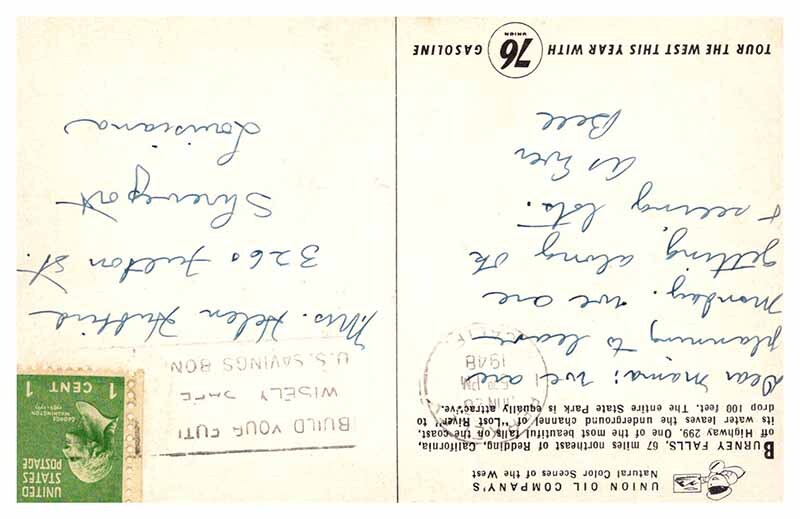 UNION OIL COMPANY'S
Natural Color Scenes of the West
BURNEY FALLS, 67 miles northeast of Redding, California,
off Highway 299. One of the most beautiful falls on the coast,
its water leaves the underground channel of "Lost River" to
drop 100 feet. The entire State Park is equally attractive.
Dear Mama: we are
planning to leave
Monday. we are
getting along ok
& seeing lots.
As Ever
Bell
TOUR THE WEST THIS YEAR WITH UNION 76 GASOLINE
PM
1948
CALIF
BUILD YOUR FUTU
WISELY SAFE
U.S. SAVINGS BON
UNITED
STATES
POSTAGE
GEORGE
WASHINGTON
1789-1797
1 CENT 1
Mrs. Helen
3260 Fulton St.
Shreveport
Louisiana